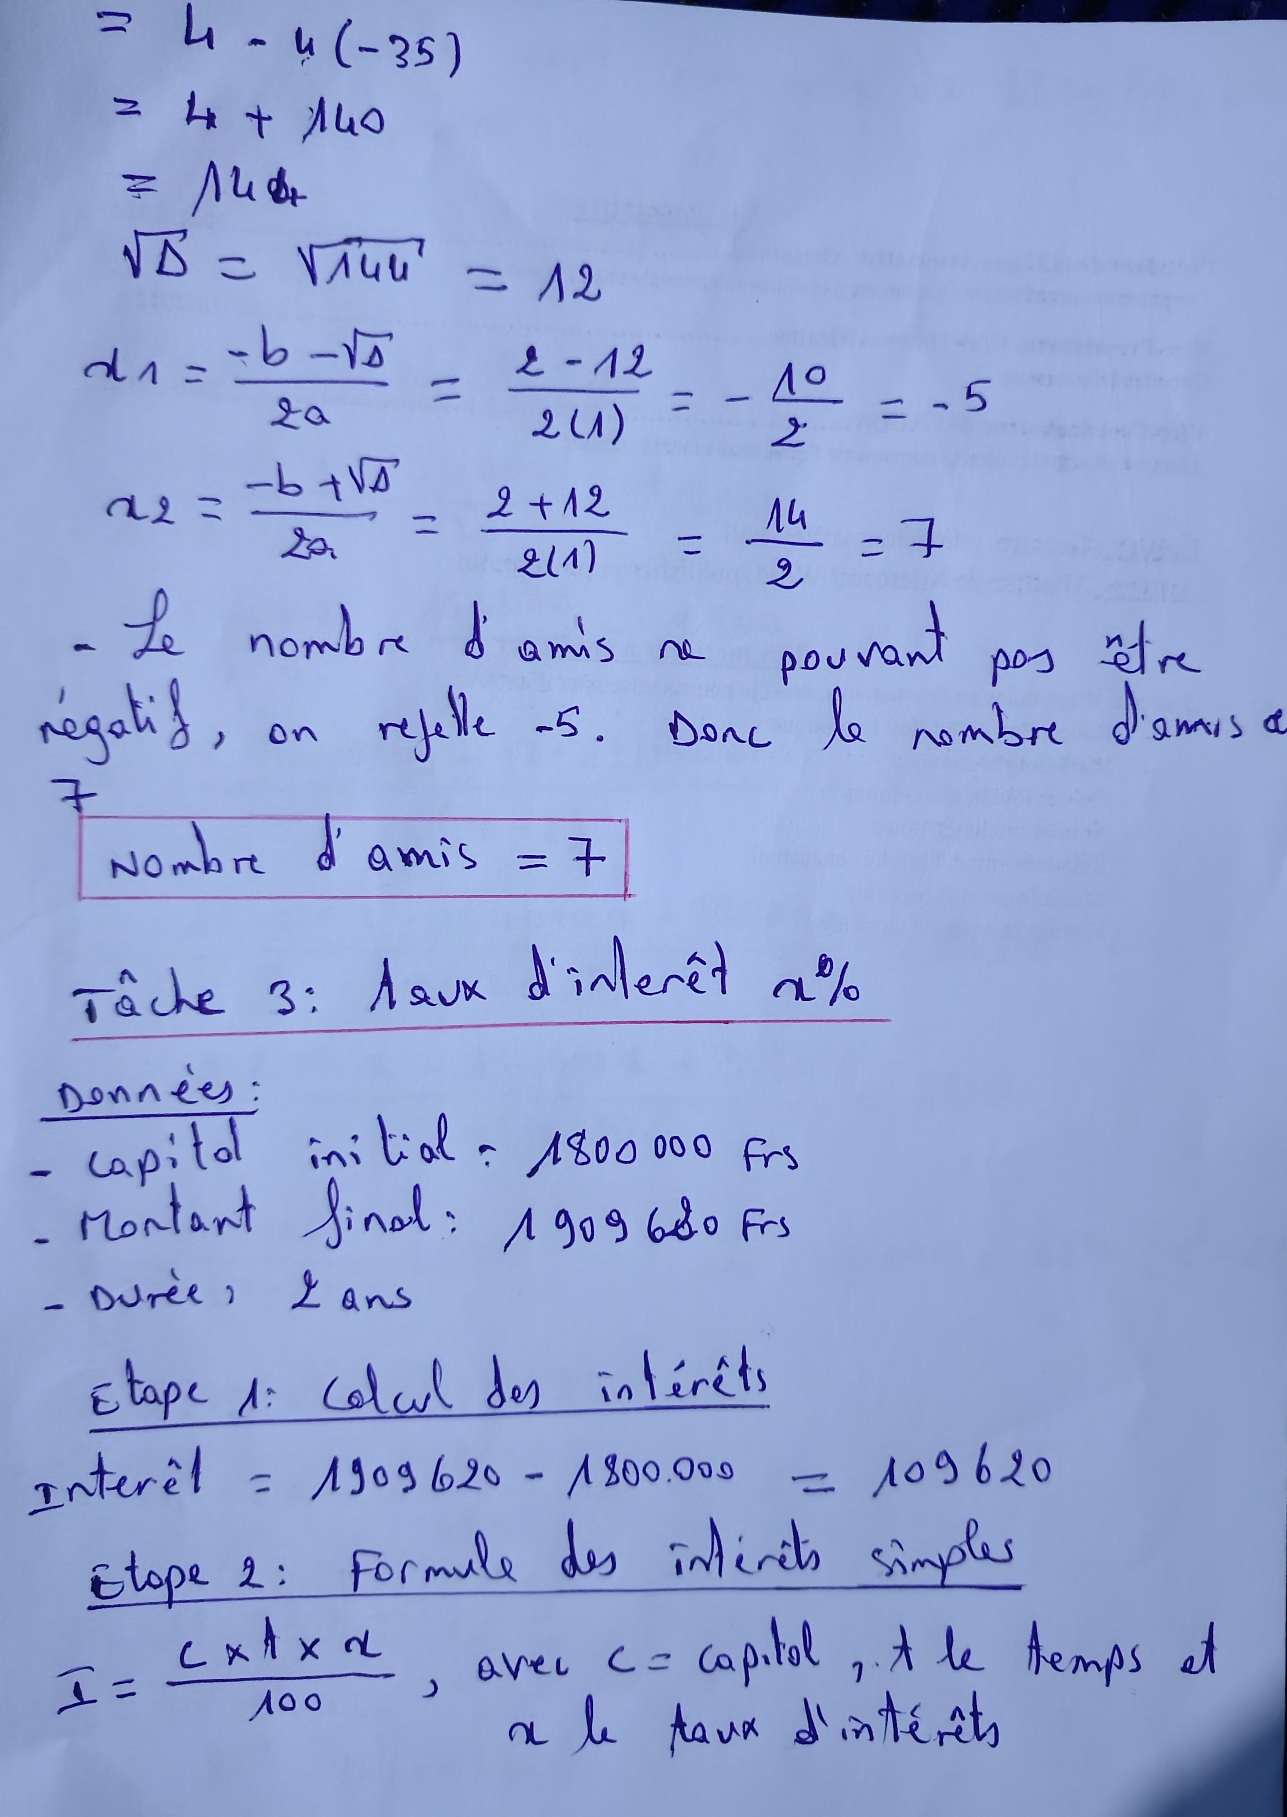 = 4 - 4(-35)
= 4 + 140
= 144
√Δ = √144 = 12
x1 = (-b - √Δ)/2a = (2 - 12)/2(1) = - 10/2 = - 5
x2 = (-b + √Δ)/2a = (2 + 12)/2(1) = 14/2 = 7
- Le nombre d'amis ne pouvant pas être
négatif, on rejette -5. Donc le nombre d'amis
7
Nombre d'amis = 7
Tâche 3: taux d'interêt x%
Données:
- Capital initial: 1800 000 Frs
- Montant final: 1909 620 Frs
- Durée: 2 ans
Etape 1: Calcul des intérêts
Interêt = 1909620 - 1800.000 = 109620
Etape 2: Formule des intérêts simples
I = (C x t x x)/100, avec C = capital, t le temps et
x le taux d'intérêts